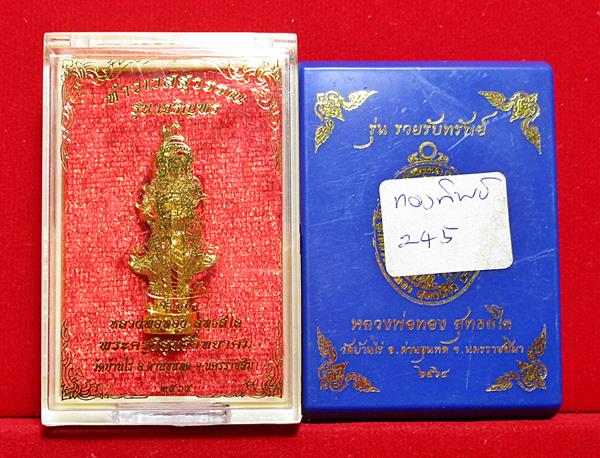 ท้าวเวสสุวรรณ
รุ่น เจริญพร
หลวงพ่อทอง สุทธสีโล
วัดบ้านไร่ อ.ด่านขุนทด จ.นครราชสีมา
๒๕๖๔
รุ่น รวยรับทรัพย์
ทองทิพย์
245
หลวงพ่อทอง สุทธสีโล
วัดบ้านไร่ อ.ด่านขุนทด จ.นครราชสีมา
๒๕๖๔